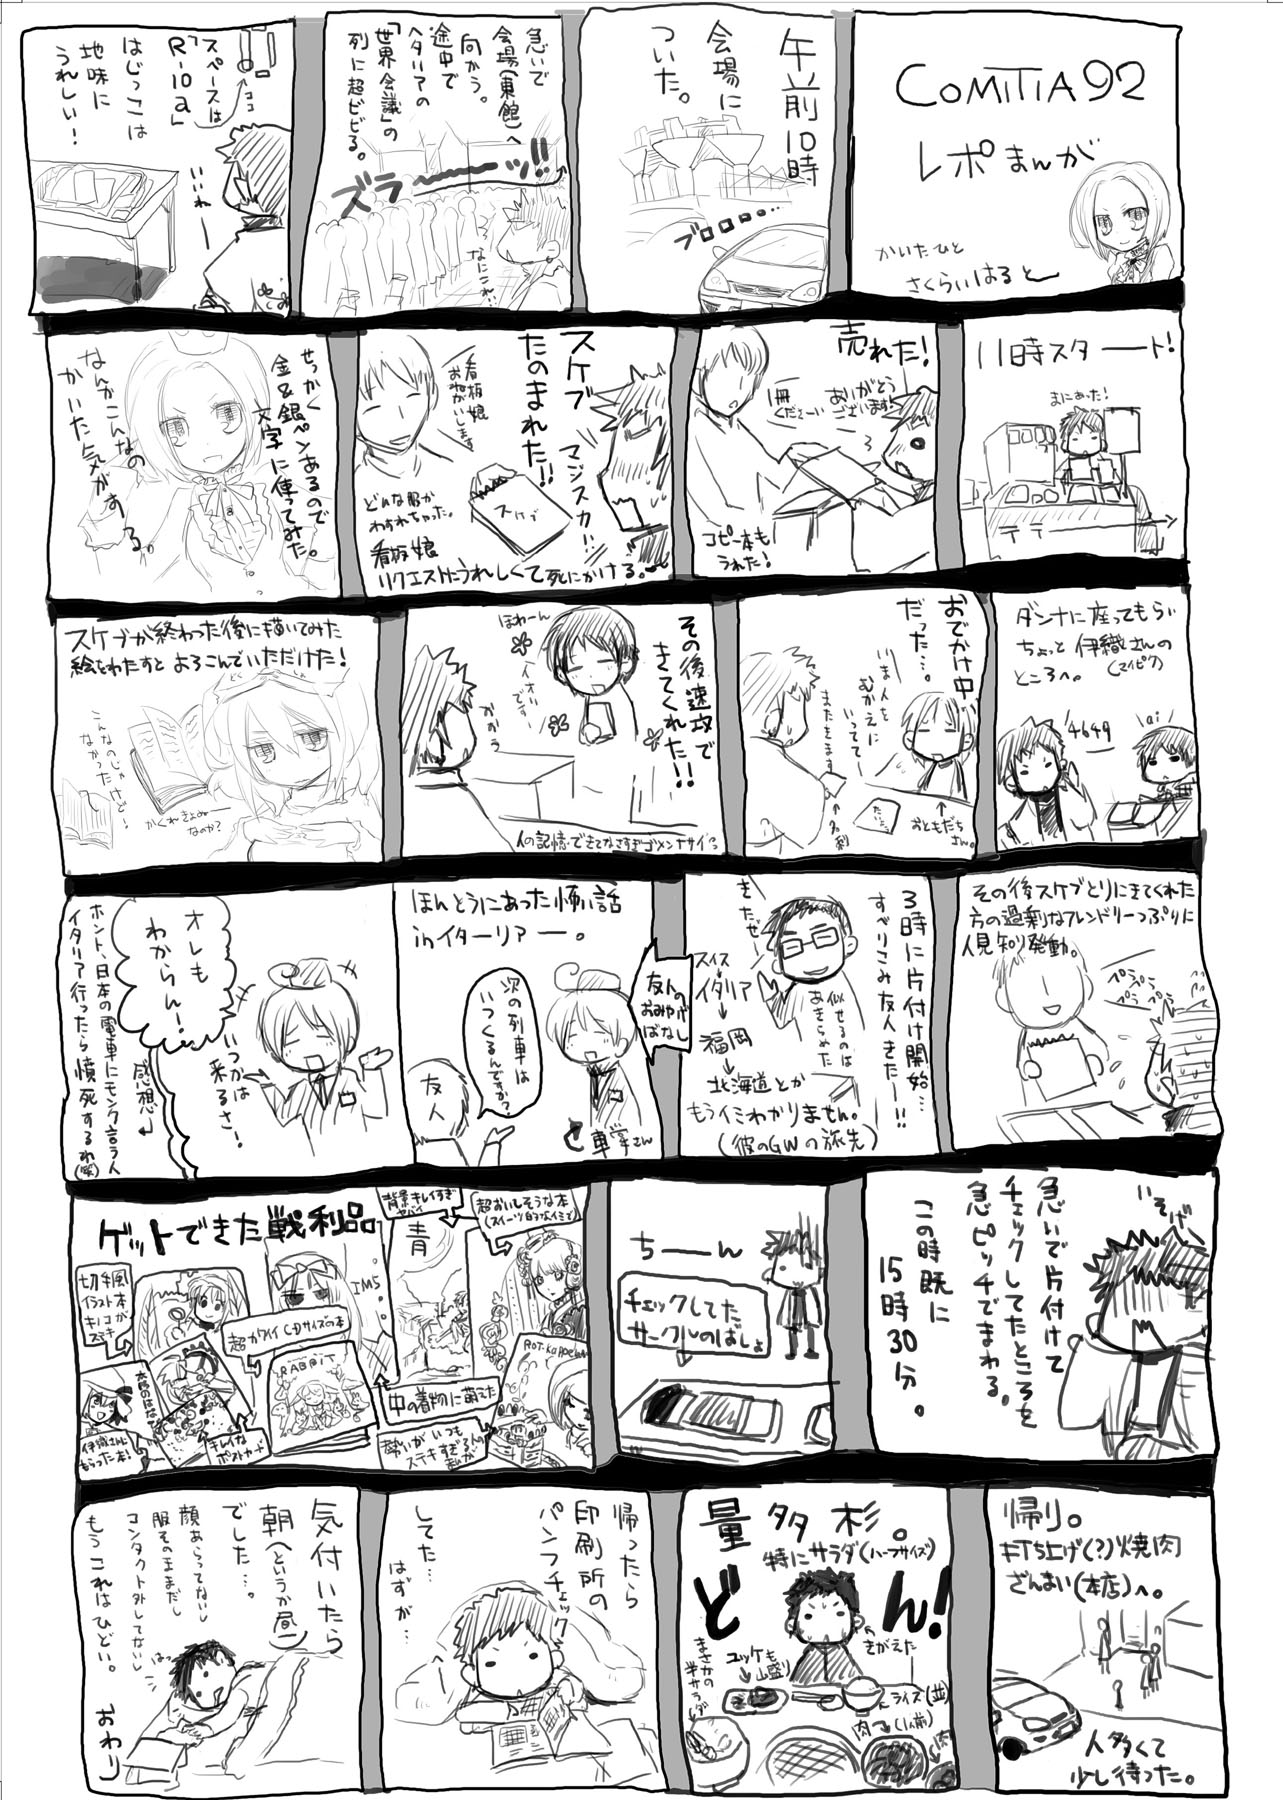 COMITIA92
レポまんが
かいたひと
さくらいはると
午前10時
会場に
ついた。
ブロロロ・・・
急いで
会場(東館)へ
向かう。
途中で
ヘタリアの
「世界会議」の
列に超ビビる。
ズラーーッ!!
なにこれ…
スペースは
「R-10a」
ココ
はじっこは
地味に
うれしい!
いいねー
11時スタート!
まにあった!
売れた!
1冊
くださーい
ありがとう
ございます!
コピー本も
うれた!
スケブ
たのまれた!!
マジスカ!!
看板娘
おねがいします
スケブ
どんな服か
わすれちゃった。
看板娘
リクエストにうれしくて死にかける。
せっかく
金&銀ペンあるので
文字に使ってみた。
なんかこんなの
かいた気がする。
ダンナに座ってもらい
ちょっと伊織さんの
(マイピク)
ところへ。
4649
おでかけ中
だった…。
いま人を
むかえに
いってて…
またきます
名刺
おともだち
さん。
その後速攻で
きてくれた!!
ほわーん
イオリ
です
人の記憶できてなさすぎゴメンナサイ
スケブが終わった後に描いてみた
絵をわたすとよろこんでいただけた!
こんなのじゃ
なかったけど!
かくれきょぬー
なのか?
その後スケブとりにきてくれた
方の過剰なフレンドリーっぷりに
人見知り発動。
ペラペラ
ペラペラ
3時に片付け開始…
すべりこみ友人きたー!!
きたぜー
似せるのは
あきらめた
スイス
イタリア
福岡
北海道とか
もうイミわかりません。
(彼のGWの旅先)
友人の
おみやげ
ばなし
ほんとうにあった怖い話
inイターリアー。
次の列車は
いつくるんですか?
友人
車掌さん
いつかは
来るさ!
オレも
わからん!
感想
ホント、日本の電車にモンク言う人
イタリア行ったら憤死するわ(笑)
いそげ
急いで片付けて
チェックしてたところを
急ピッチでまわる。
この時既に
15時30分。
ちーん
チェックしてた
サークルのばしょ
ゲットできた戦利品
背景キレイすぎ
ヤバイ
超おいしそうな本
(スイーツ的なイミで)
青
切り絵風
イラスト本が
キノコ
ステキ
超カワイイCDサイズの本
RABBIT
中の着物に萌えた
伊織さんに
もらった本!
キレイな
ポストカード
勢いがいつも
ステキすぎる
帰り。
打ち上げ(?)焼肉
ざんまい(本店)へ。
人多くて
少し待った。
量タ杉。
特にサラダ(ハーフサイズ)
どん!
きがえた
ユッケも
山盛り
まさかの
半サラダ
ライス(並)
肉(1人前)
肉
帰ったら
印刷所の
パンフチェック
してた…
はずが…
気付いたら
朝(というか昼)
でした…。
はっ
顔あらってないし
服そのまま だし
コンタクト外してないし
もうこれはひどい。
おわり